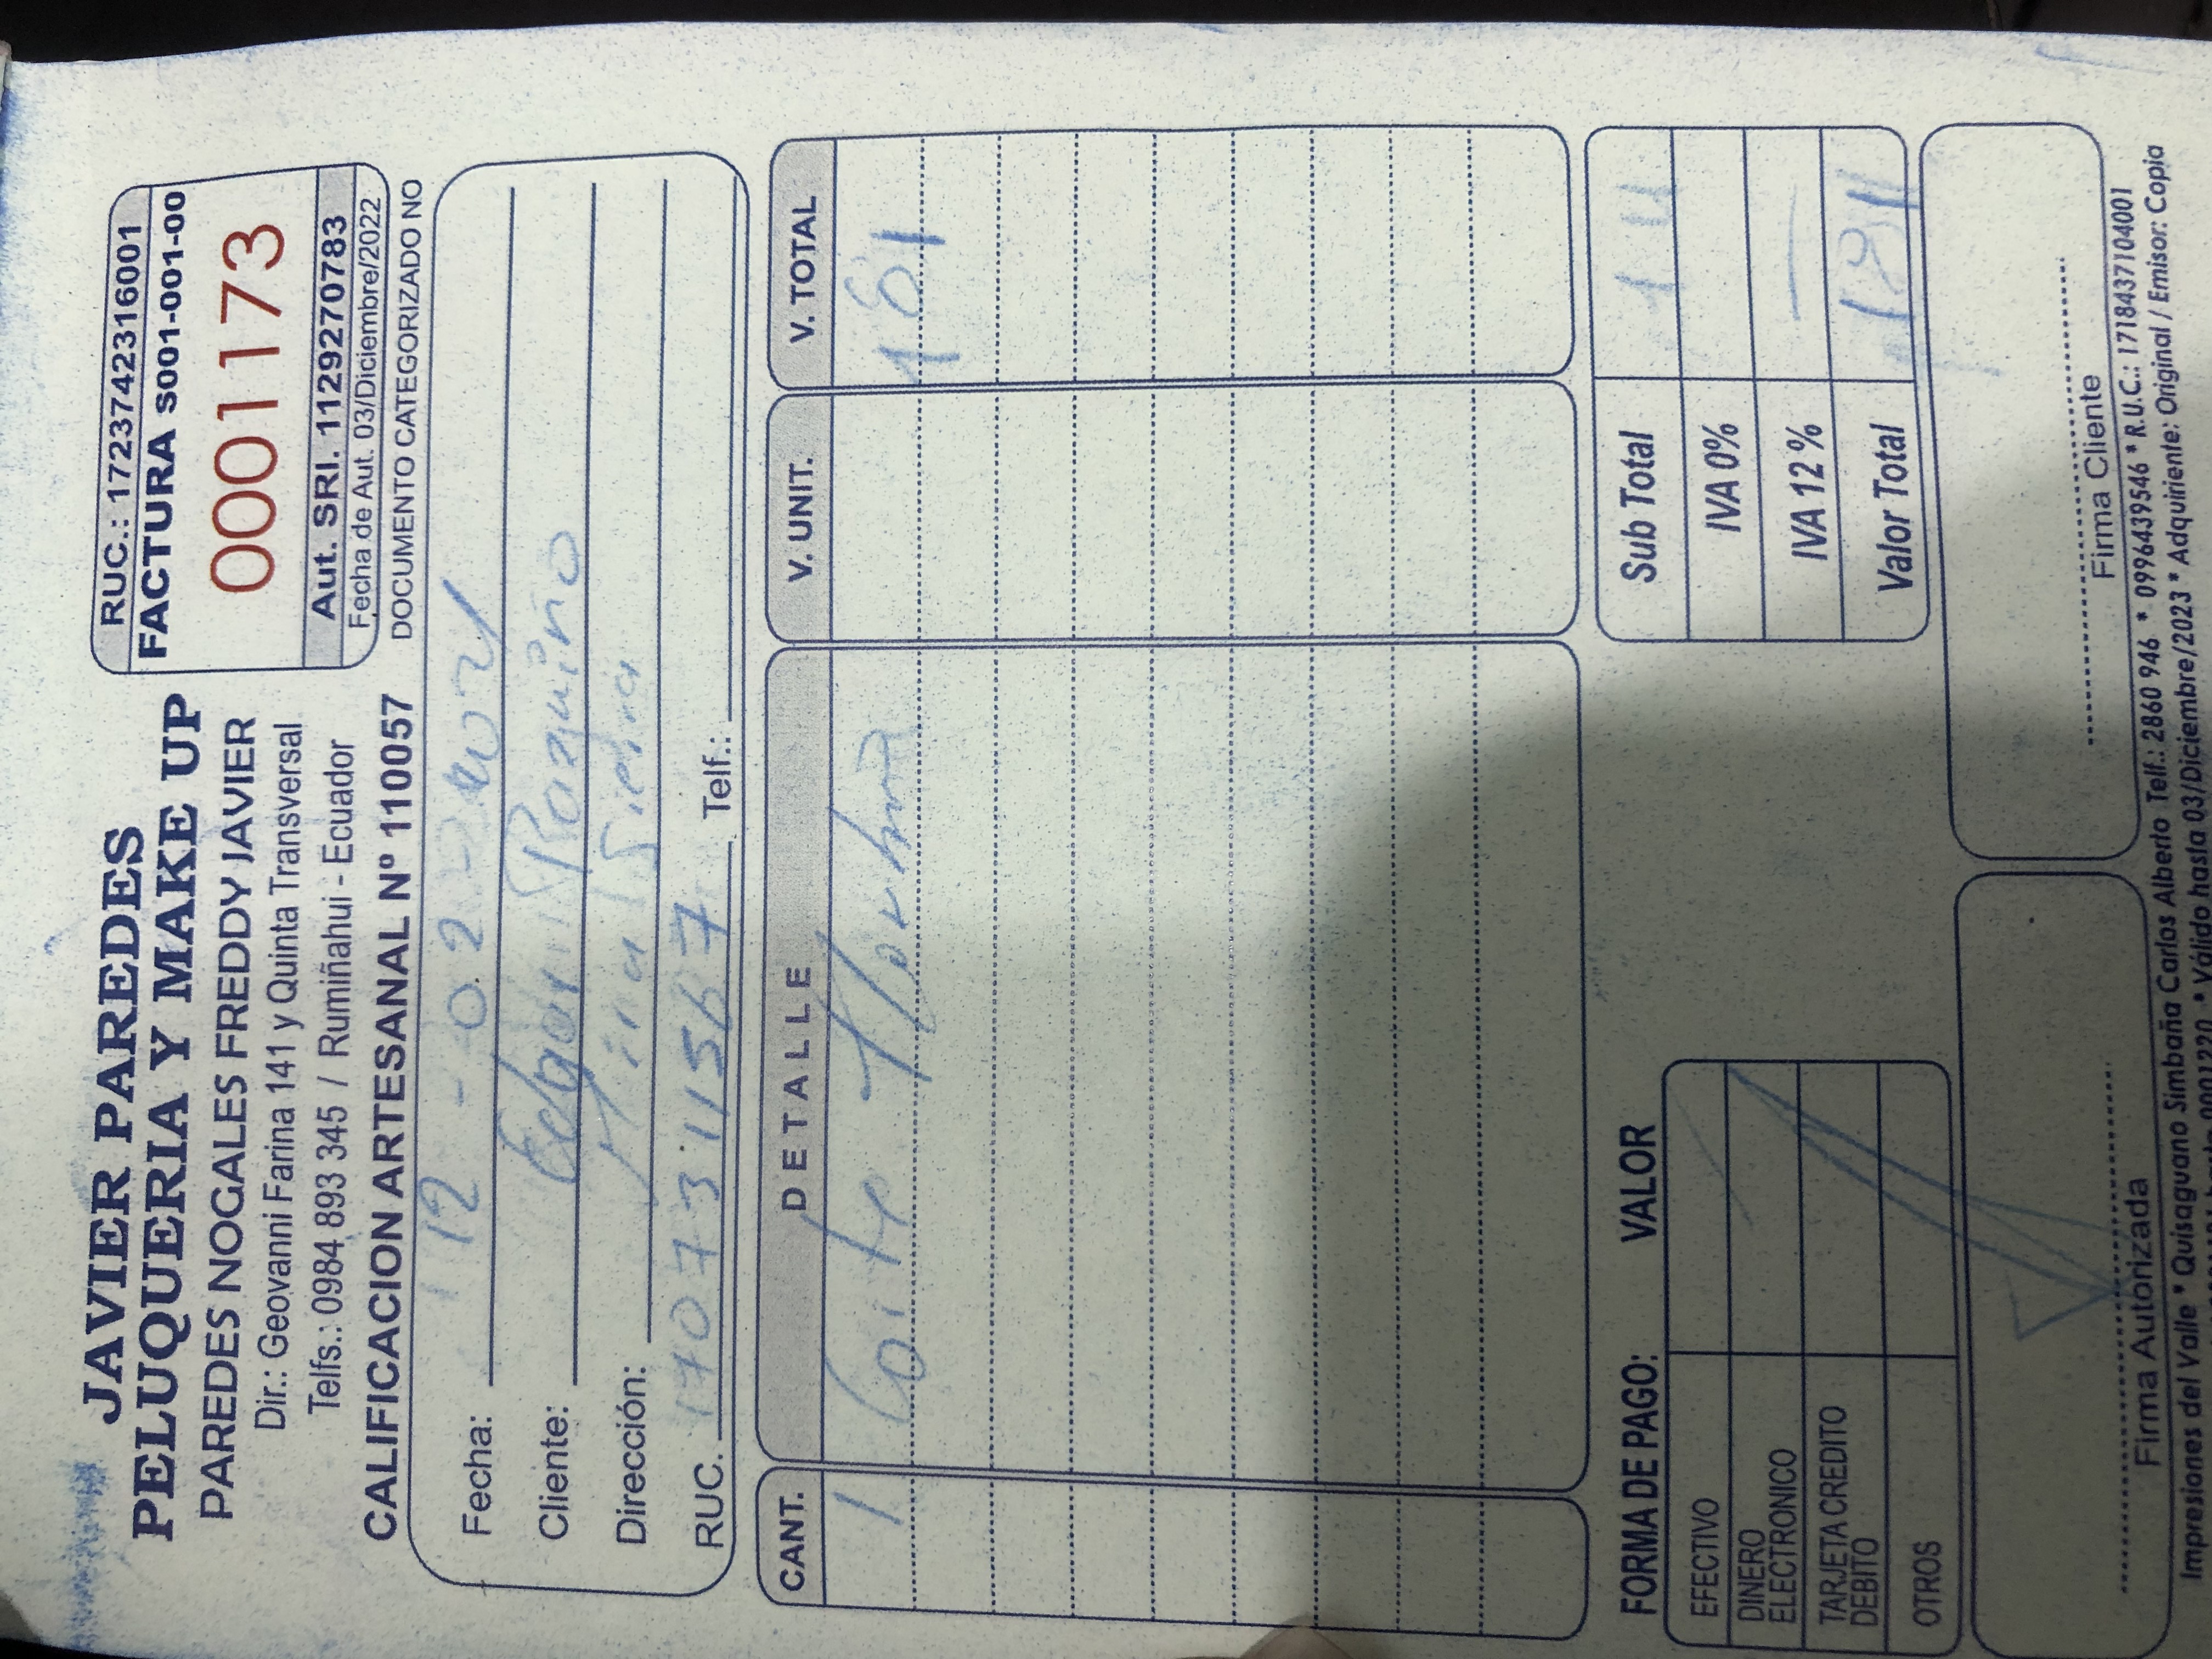 JAVIER PAREDES
PELUQUERIA Y MAKE UP
PAREDES NOGALES FREDDY JAVIER
Dir.: Geovanni Farina 141 y Quinta Transversal
Telfs.: 0984 893 345 / Rumiñahui - Ecuador
CALIFICACION ARTESANAL Nº 110057
RUC.: 1723742316001
FACTURA S001-001-00
0001173
Aut. SRI. 1129270783
Fecha de Aut. 03/Diciembre/2022
DOCUMENTO CATEGORIZADO NO
Fecha: 12 - 02 -
Cliente: Edgar
Dirección: Mira Sierra
RUC. 1707311567 Telf.:
CANT. DETALLE V. UNIT. V. TOTAL
1 Corte
FORMA DE PAGO: VALOR
EFECTIVO
DINERO ELECTRONICO
TARJETA CREDITO DEBITO
OTROS
Sub Total
IVA 0%
IVA 12% —
Valor Total
Firma Autorizada
Firma Cliente
Impresiones del Valle * Quisaguano Simbaña Carlos Alberto Telf.: 2860 946 * 0996439546 * R.U.C.: 1718437104001
hasta 0001220 * Válido hasta 03/Diciembre/2023 * Adquiriente: Original / Emisor: Copia